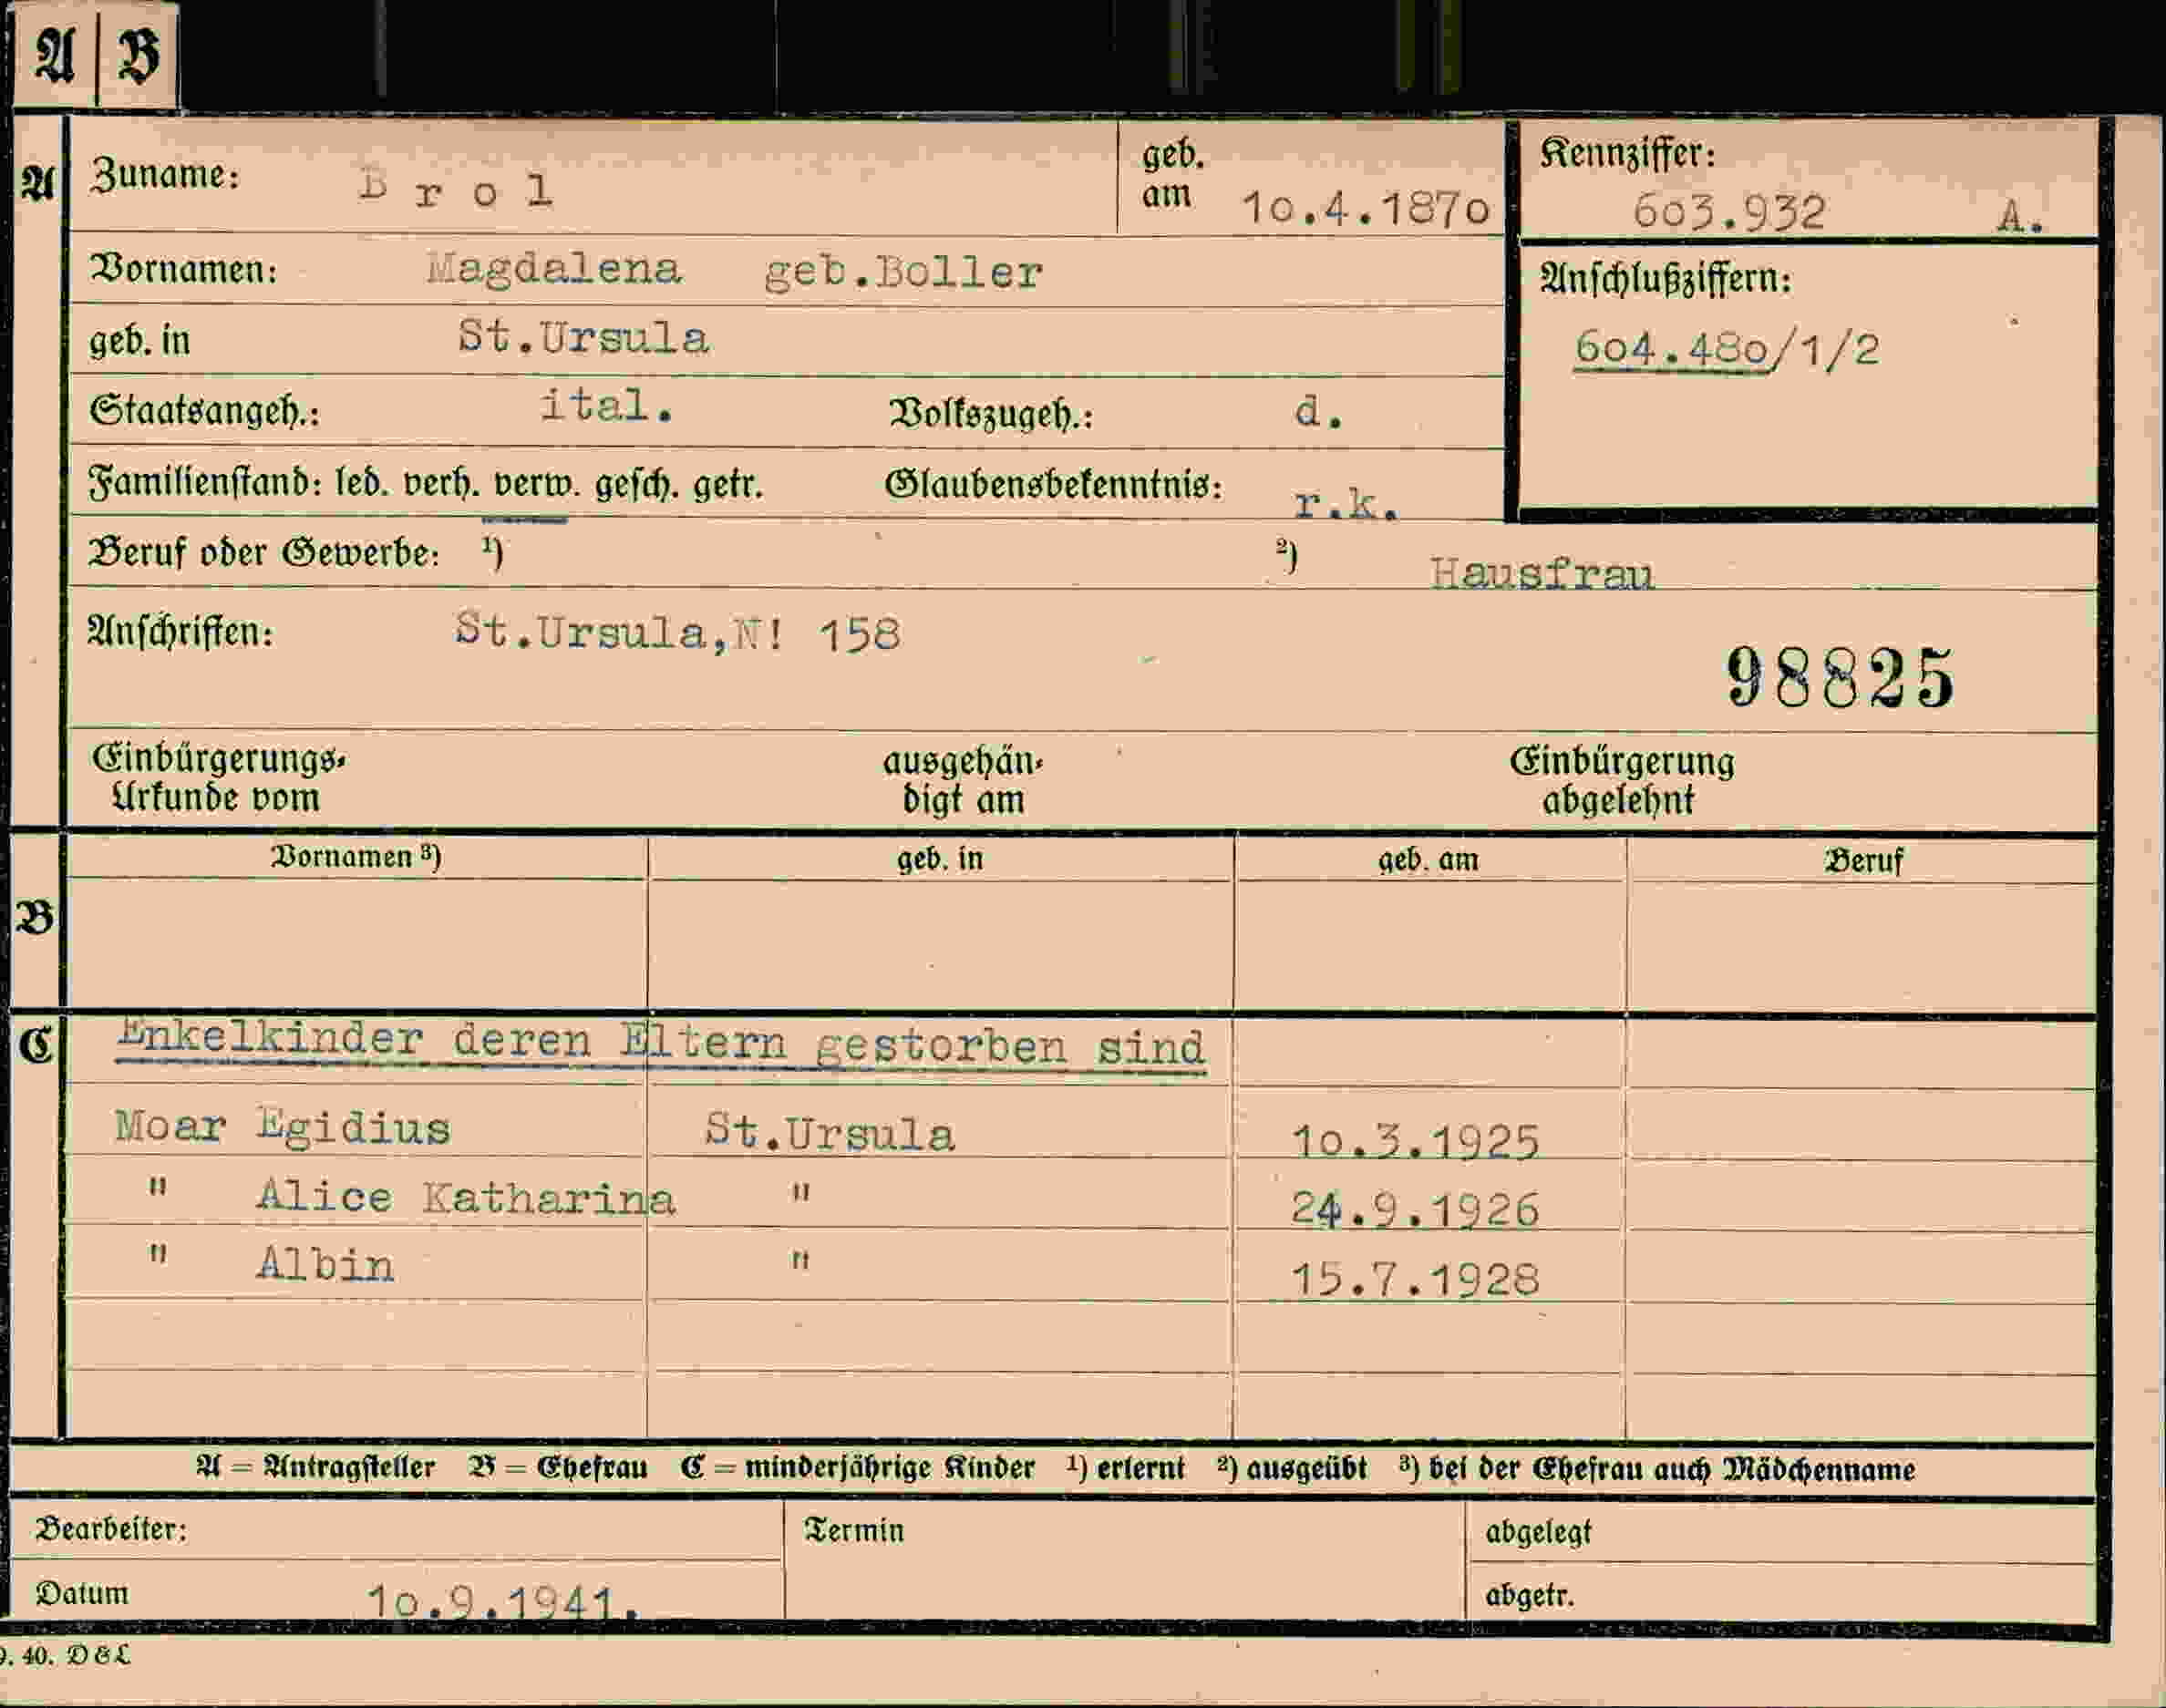 A B
A Zuname: B r o l geb. am 10.4.1870 Kennziffer: 603.932 A.
Vornamen: Magdalena geb.Boller Anschlußziffern:
geb. in St.Ursula 604.480/1/2
Staatsangeh.: ital. Volkszugeh.: d.
Familienstand: led. verh. verw. gesch. getr. Glaubensbekenntnis: r.k.
Beruf oder Gewerbe: ¹) ²) Hausfrau
Anschriften: St.Ursula,N! 158
98825
Einbürgerungs- ausgehän- Einbürgerung
Urkunde vom digt am abgelehnt
Vornamen ³) geb. in geb. am Beruf
B
C Enkelkinder deren Eltern gestorben sind
Moar Egidius St.Ursula 10.3.1925
" Alice Katharina " 24.9.1926
" Albin " 15.7.1928
A = Antragsteller B = Ehefrau C = minderjährige Kinder ¹) erlernt ²) ausgeübt ³) bei der Ehefrau auch Mädchenname
Bearbeiter: Termin abgelegt
Datum 10.9.1941. abgetr.
9. 40. D & L